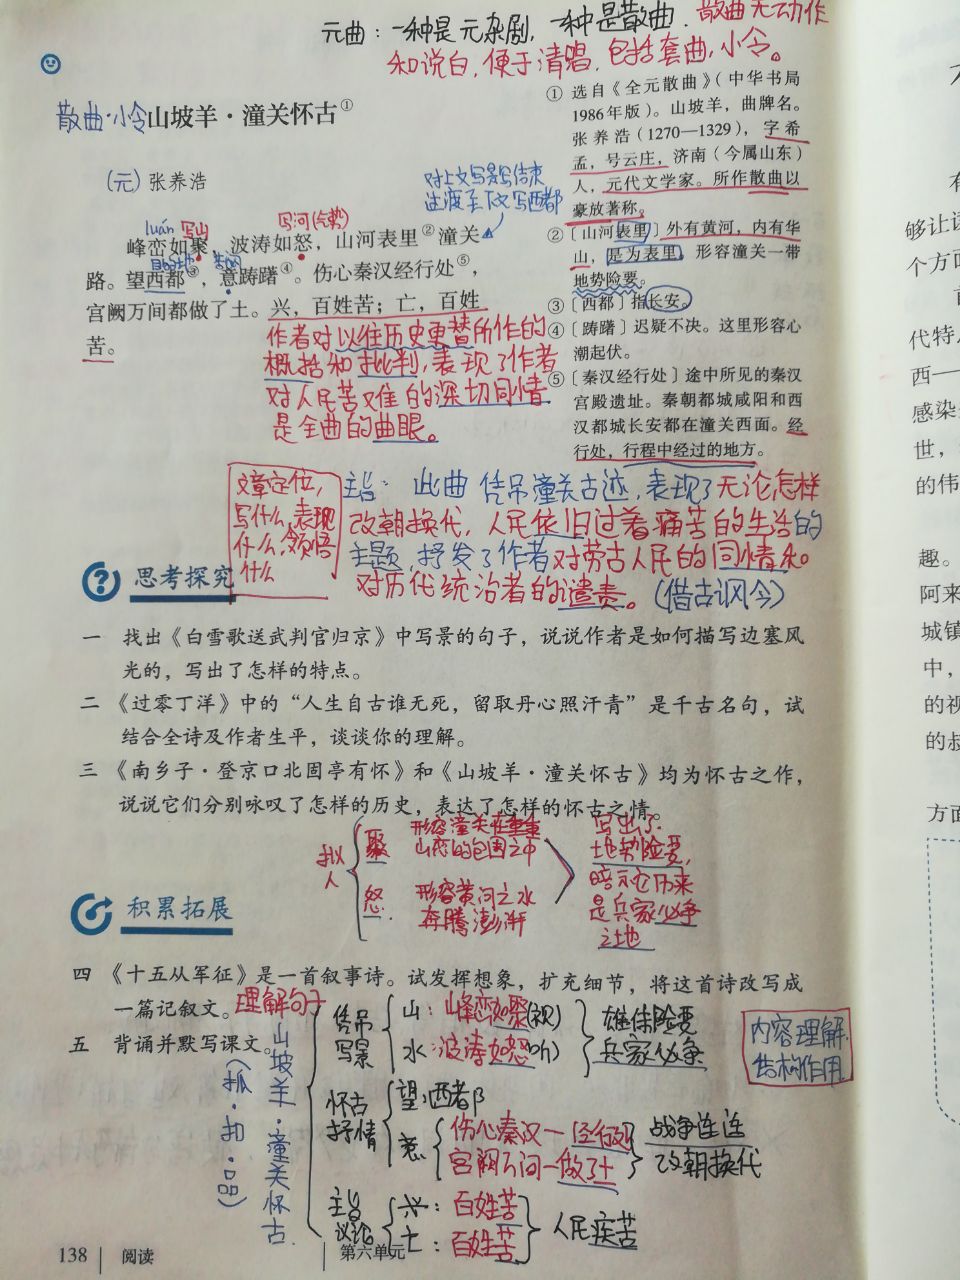 元曲：一种是元杂剧，一种是散曲.散曲无动作
和说白，便于清唱，包括套曲，小令。
散曲·小令山坡羊·潼关怀古①
（元）张养浩
对上文写景结束
过渡至下文写西都
luán 写山
写河(气势)
峰峦如聚，波涛如怒，山河表里②潼关
路。望西都③，意踌躇④。伤心秦汉经行处⑤，
宫阙万间都做了土。兴，百姓苦；亡，百姓
苦。
作者对以往历史更替所作的
概括和批判，表现了作者
对人民苦难的深切同情
是全曲的曲眼。
① 选自《全元散曲》（中华书局
1986年版）。山坡羊，曲牌名。
张养浩（1270—1329），字希
孟，号云庄，济南（今属山东）
人，元代文学家。所作散曲以
豪放著称。
②〔山河表里〕外有黄河，内有华
山，是为表里。形容潼关一带
地势险要。
③〔西都〕指长安。
④〔踌躇〕迟疑不决。这里形容心
潮起伏。
⑤〔秦汉经行处〕途中所见的秦汉
宫殿遗址。秦朝都城咸阳和西
汉都城长安都在潼关西面。经
行处，行程中经过的地方。
文章定位，
写什么，表现
什么，领悟
什么
主旨：此曲凭吊潼关古迹，表现了无论怎样
改朝换代，人民依旧过着痛苦的生活的
主题，抒发了作者对劳古人民的同情和
对历代统治者的谴责。（借古讽今）
思考探究
一 找出《白雪歌送武判官归京》中写景的句子，说说作者是如何描写边塞风
光的，写出了怎样的特点。
二 《过零丁洋》中的“人生自古谁无死，留取丹心照汗青”是千古名句，试
结合全诗及作者生平，谈谈你的理解。
三 《南乡子·登京口北固亭有怀》和《山坡羊·潼关怀古》均为怀古之作，
说说它们分别咏叹了怎样的历史，表达了怎样的怀古之情。
拟人
聚
形容潼关在重重
山峦的包围之中
怒
形容黄河之水
奔腾澎湃
写出了
地势险要，
暗示它历来
是兵家必争
之地
积累拓展
四 《十五从军征》是一首叙事诗。试发挥想象，扩充细节，将这首诗改写成
一篇记叙文。
理解句子
五 背诵并默写课文。
（抓·扣·品）
山坡羊·潼关怀古
凭吊
写景
山：峰峦如聚(视)
水：波涛如怒(听)
雄伟险要
兵家必争
内容理解
结构作用
怀古
抒情
望：西都
意
伤心秦汉一经行处
宫阙万间一做了土
战争连连
改朝换代
主旨
议论
兴：百姓苦
亡：百姓苦
人民疾苦
138 阅读 第六单元
有
够让读
个方面
代特
西一
感染
世，
的伟
趣。
阿来
城镇
中，
的视
的叔
方面